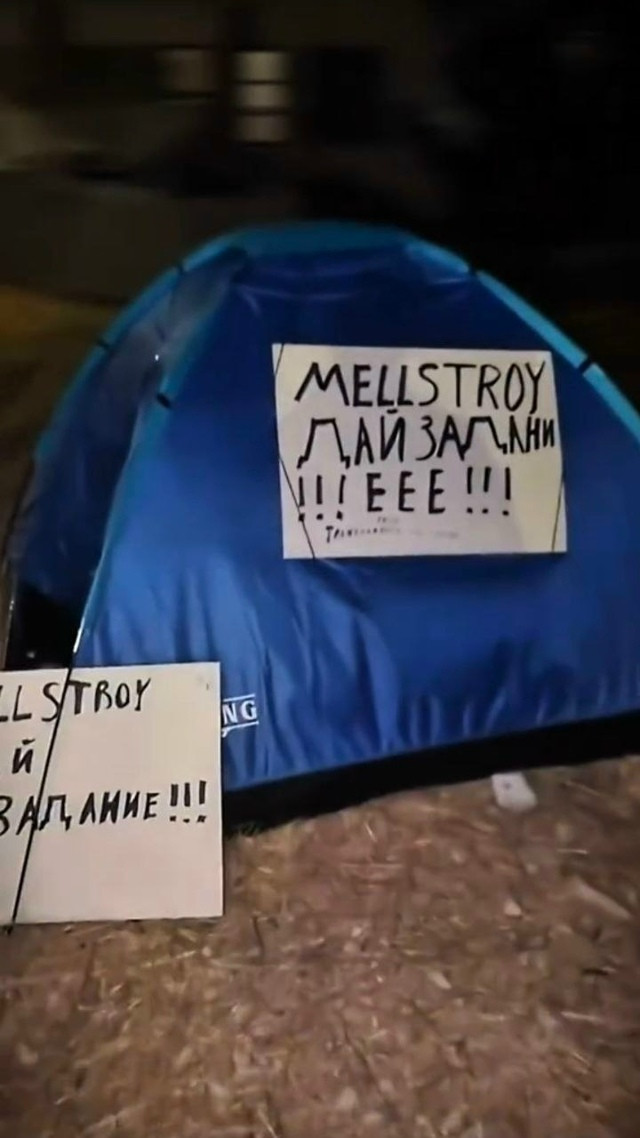 MELLSTROY
ДАЙ ЗАДАНИ
!!! ЕЕЕ !!!
LLSTROY
Й
ЗАДАНИЕ!!!
NG